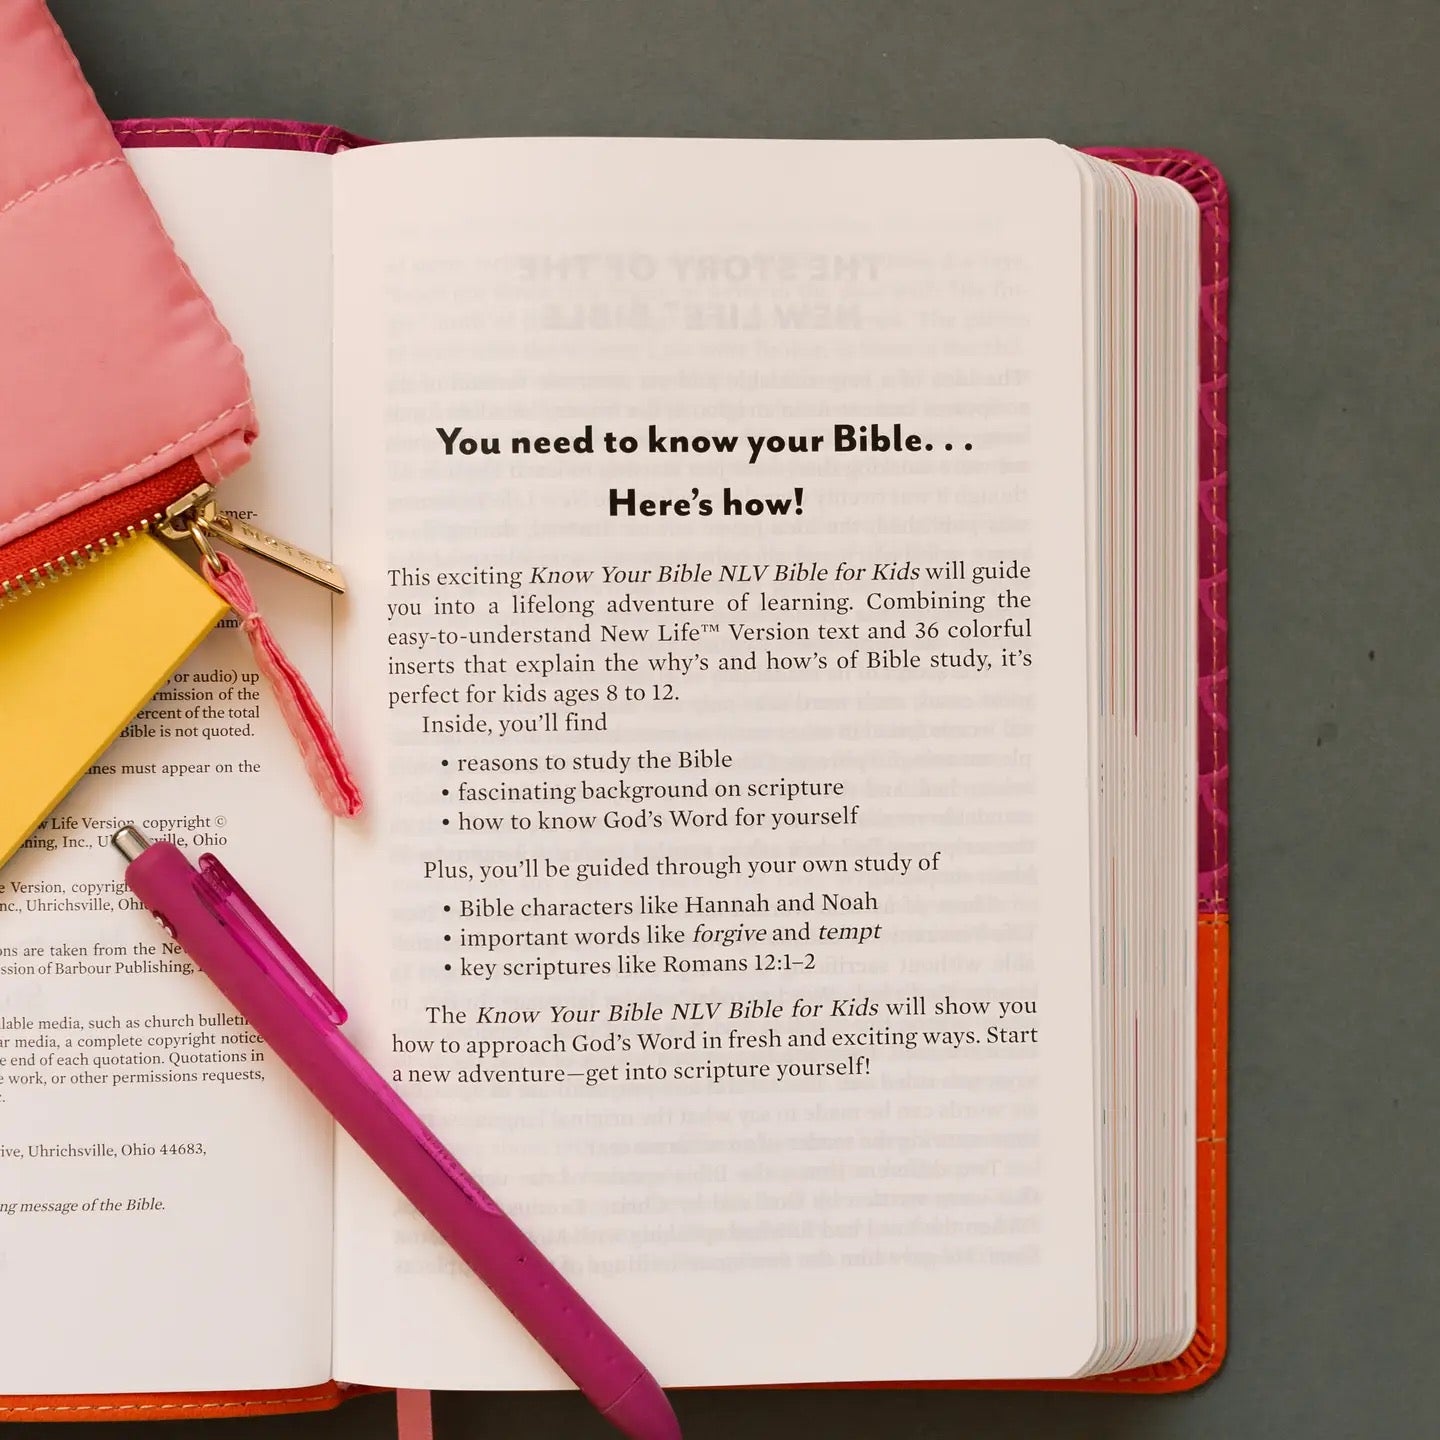 mer-
, or audio) up
rmission of the
ercent of the total
Bible is not quoted.
nes must appear on the
w Life Version, copyright ©
hing, Inc., ville, Ohio
e Version, copyrig
nc., Uhrichsville, Ohi
ons are taken from the Ne
ssion of Barbour Publishing,
lable media, such as church bulleti
ar media, a complete copyright notice
e end of each quotation. Quotations in
e work, or other permissions requests,
ive, Uhrichsville, Ohio 44683,
ng message of the Bible.
You need to know your Bible. . .
Here's how!
This exciting Know Your Bible NLV Bible for Kids will guide
you into a lifelong adventure of learning. Combining the
easy-to-understand New Life™ Version text and 36 colorful
inserts that explain the why's and how's of Bible study, it's
perfect for kids ages 8 to 12.
Inside, you'll find
• reasons to study the Bible
• fascinating background on scripture
• how to know God's Word for yourself
Plus, you'll be guided through your own study of
• Bible characters like Hannah and Noah
• important words like forgive and tempt
• key scriptures like Romans 12:1–2
The Know Your Bible NLV Bible for Kids will show you
how to approach God's Word in fresh and exciting ways. Start
a new adventure—get into scripture yourself!